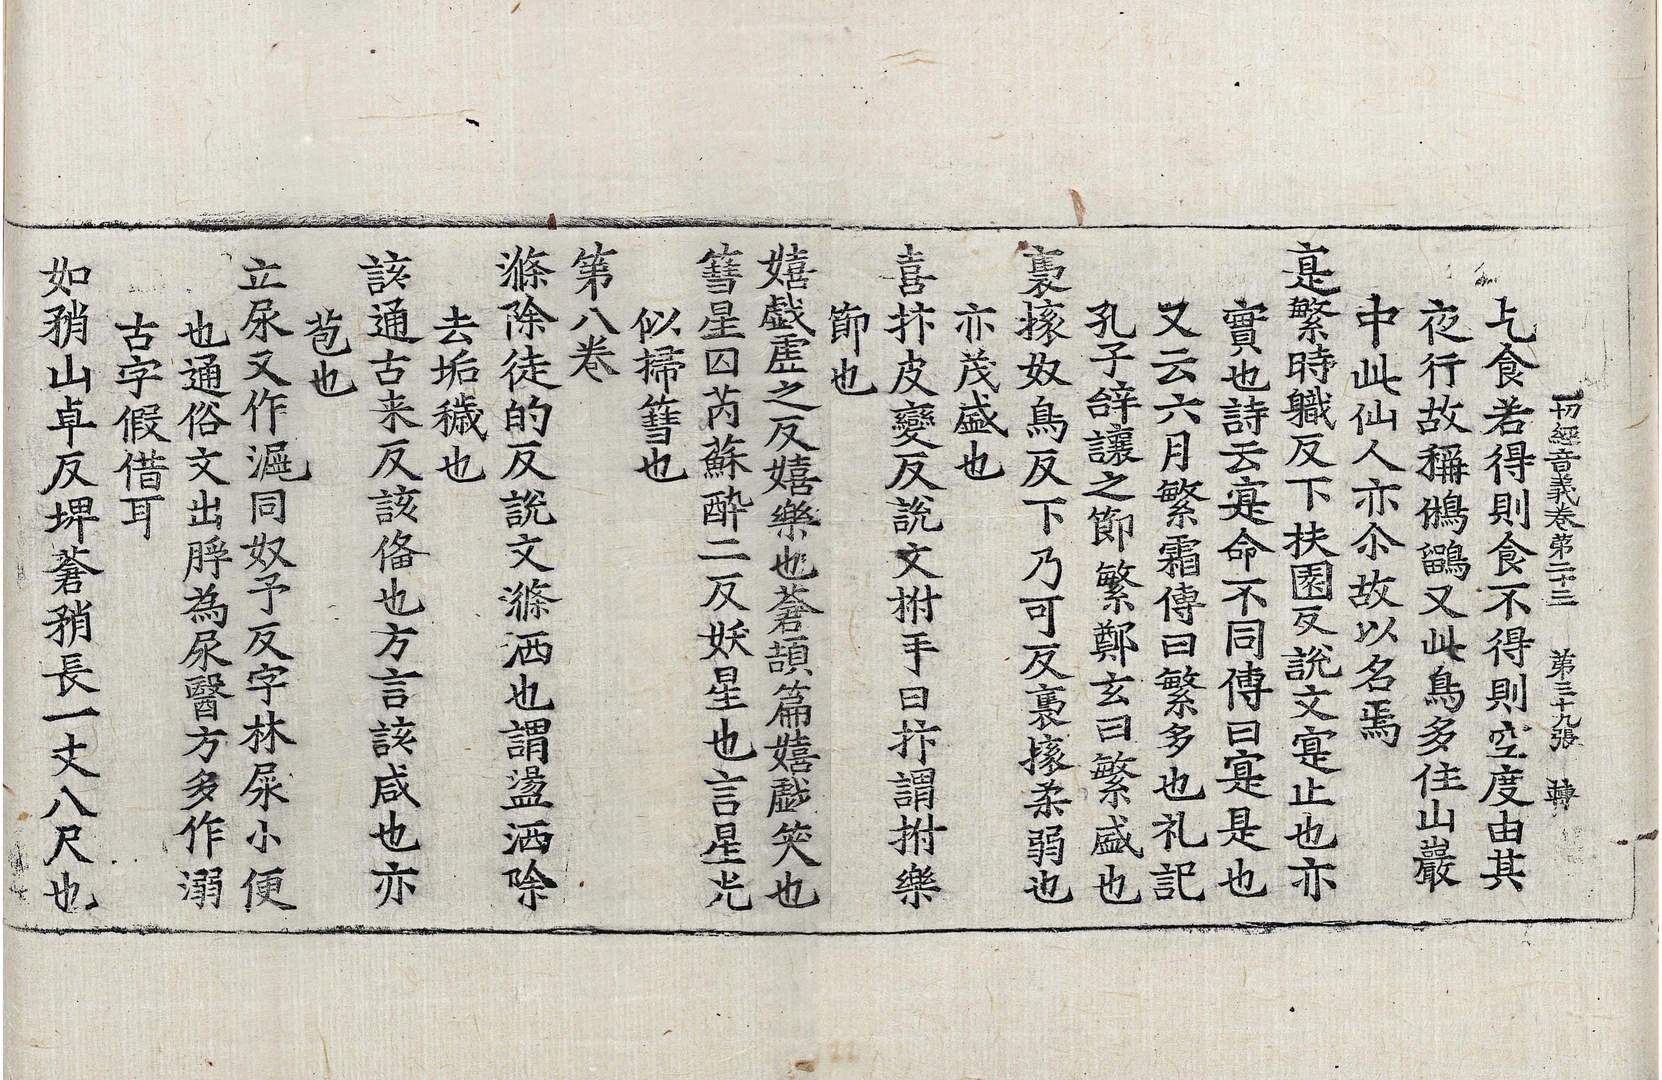 一切經音義卷第二十三 第三十九張 轉
乞食若得則食不得則空度由其
夜行故稱鵂鶹又此鳥多住山巖
中此仙人亦尒故以名焉
寔繁時職反下扶園反說文寔止也亦
實也詩云寔命不同傳曰寔是也
又云六月繁霜傳曰繁多也礼記
孔子辝讓之節繁鄭玄曰繁盛也
裛㨎奴鳥反下乃可反裛㨎柔弱也
亦茂盛也
喜抃皮變反說文拊手曰抃謂拊樂
節也
嬉戲虛之反嬉樂也蒼頡篇嬉戲笑也
篲星囚芮蘇醉二反妖星也言星光
似掃篲也
第八卷
滌除徒的反說文滌洒也謂盪洒除
去垢穢也
該通古来反該俻也方言該咸也亦
苞也
立尿又作𣽄同奴予反字林尿小便
也通俗文出脬為尿醫方多作溺
古字假借耳
如矟山卓反埤蒼矟長一丈八尺也